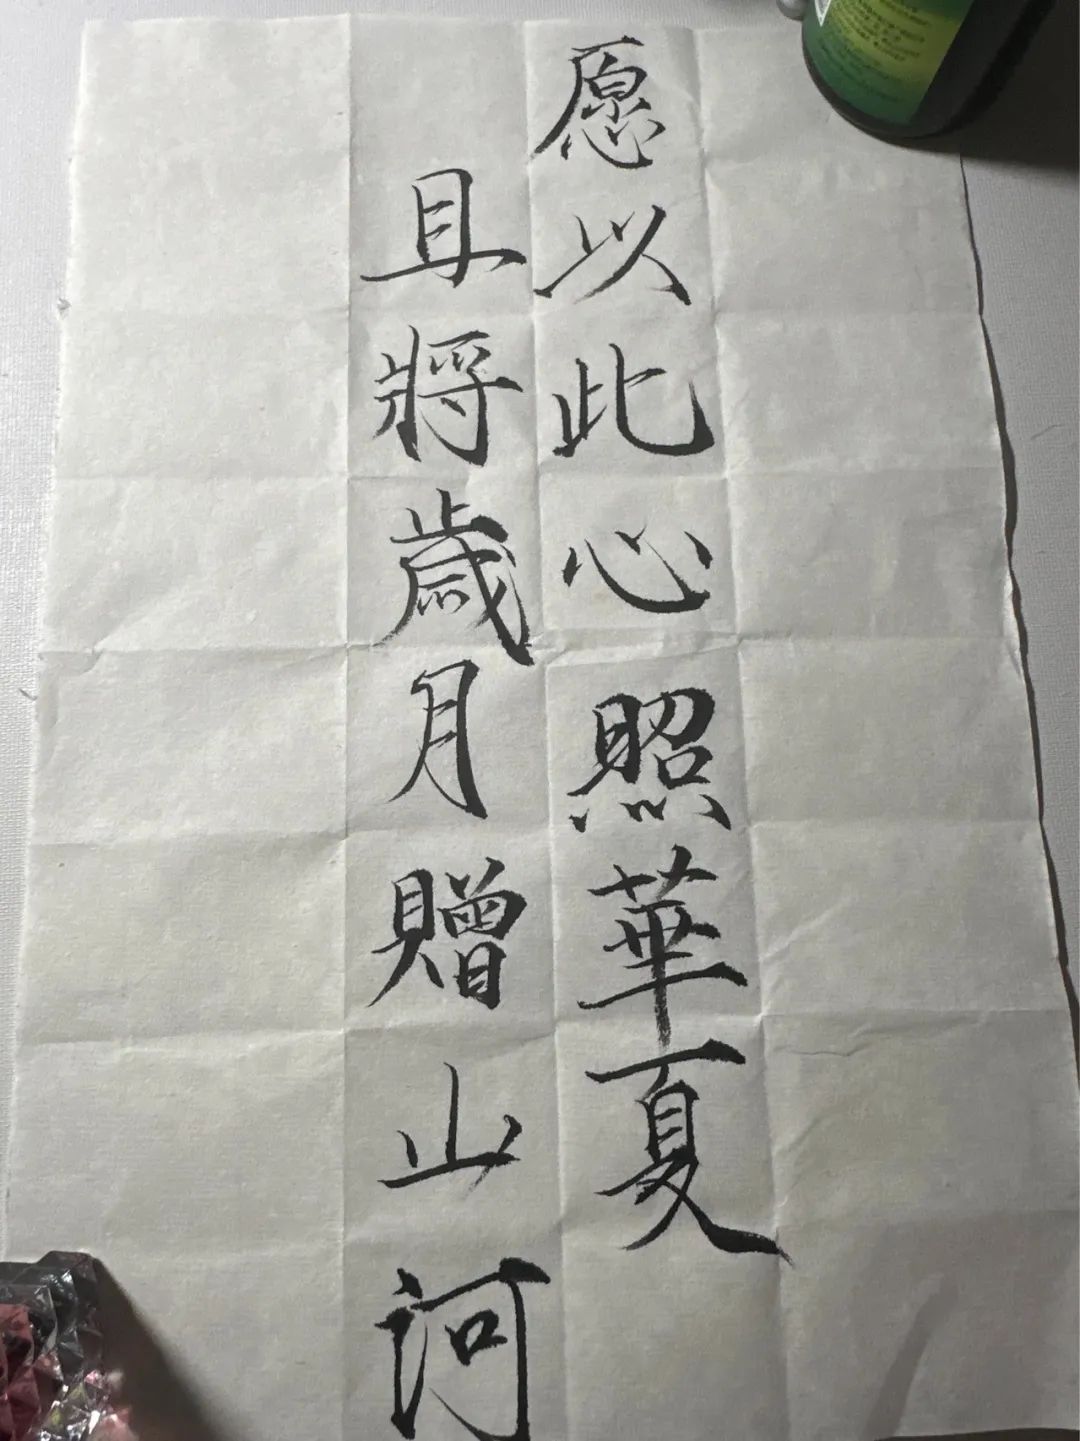 愿以此心照華夏
且將歲月贈山河